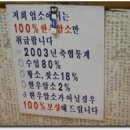 저희 업소에는
100% 한우암소만
취급합니다
※2003년 축협통계
수입80%
황소, 젖소18%
한우암소2%
※한우암소가 아닐경우
100%보상해 드립니다